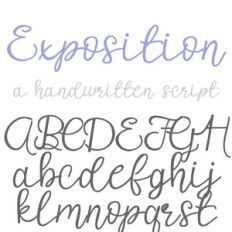 Exposition
a handwritten script
ABCDEFGH
abcdefghij
klmnopqrst